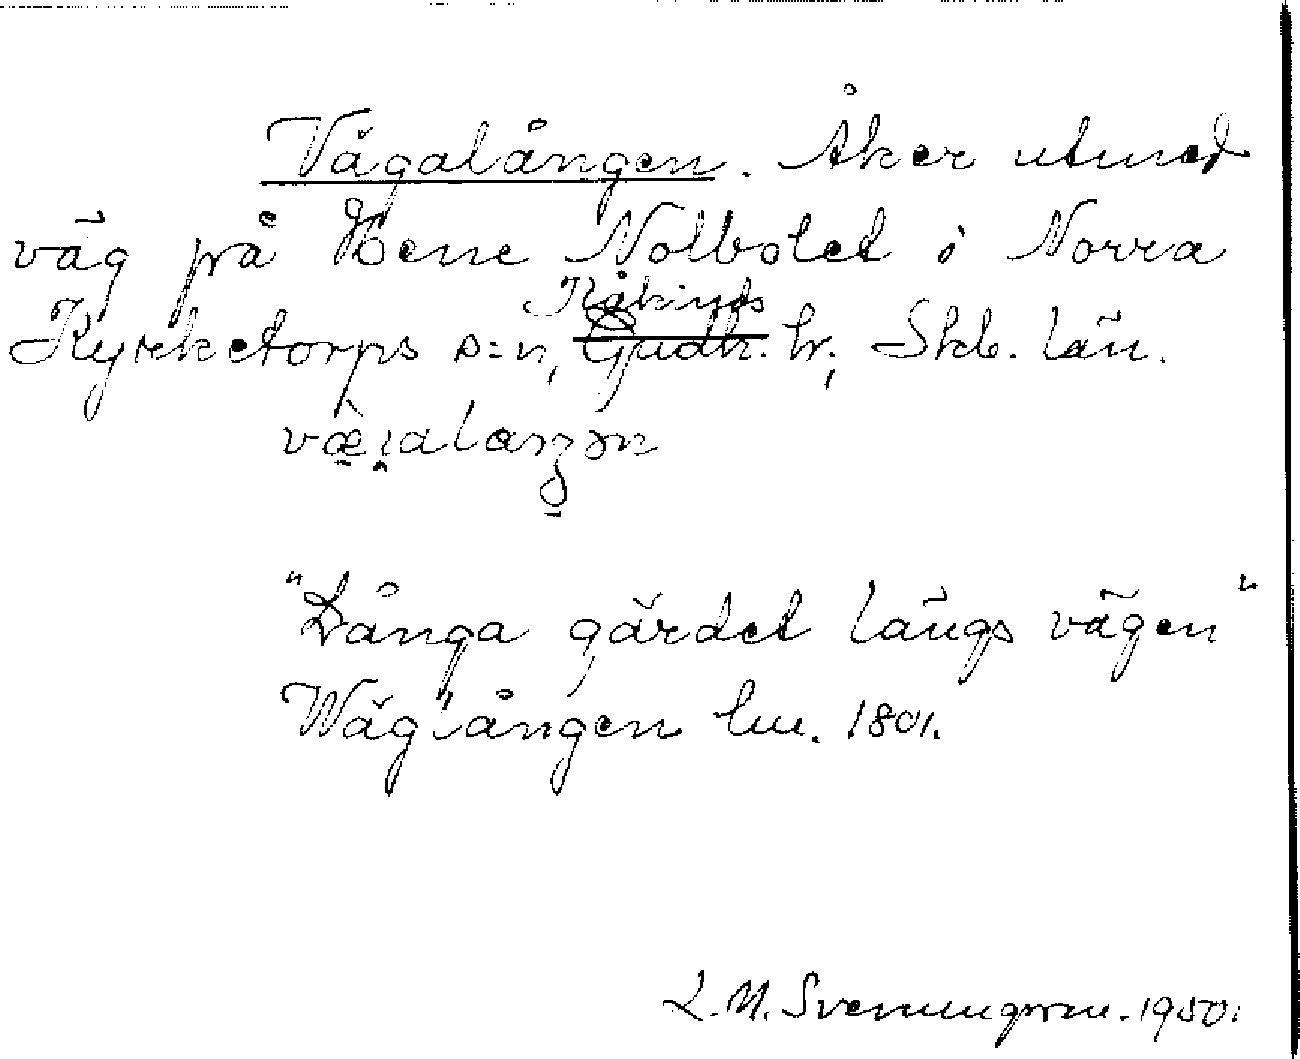 Vägalången. Åker utmed
väg på Hene Nolbotet i Norra
Kyrketorps s:n, Kåkinds hr; Skb. län.
"Långa gärdet längs vägen"
Wäglången hm. 1801.
L. M. Svenungsson. 1950.